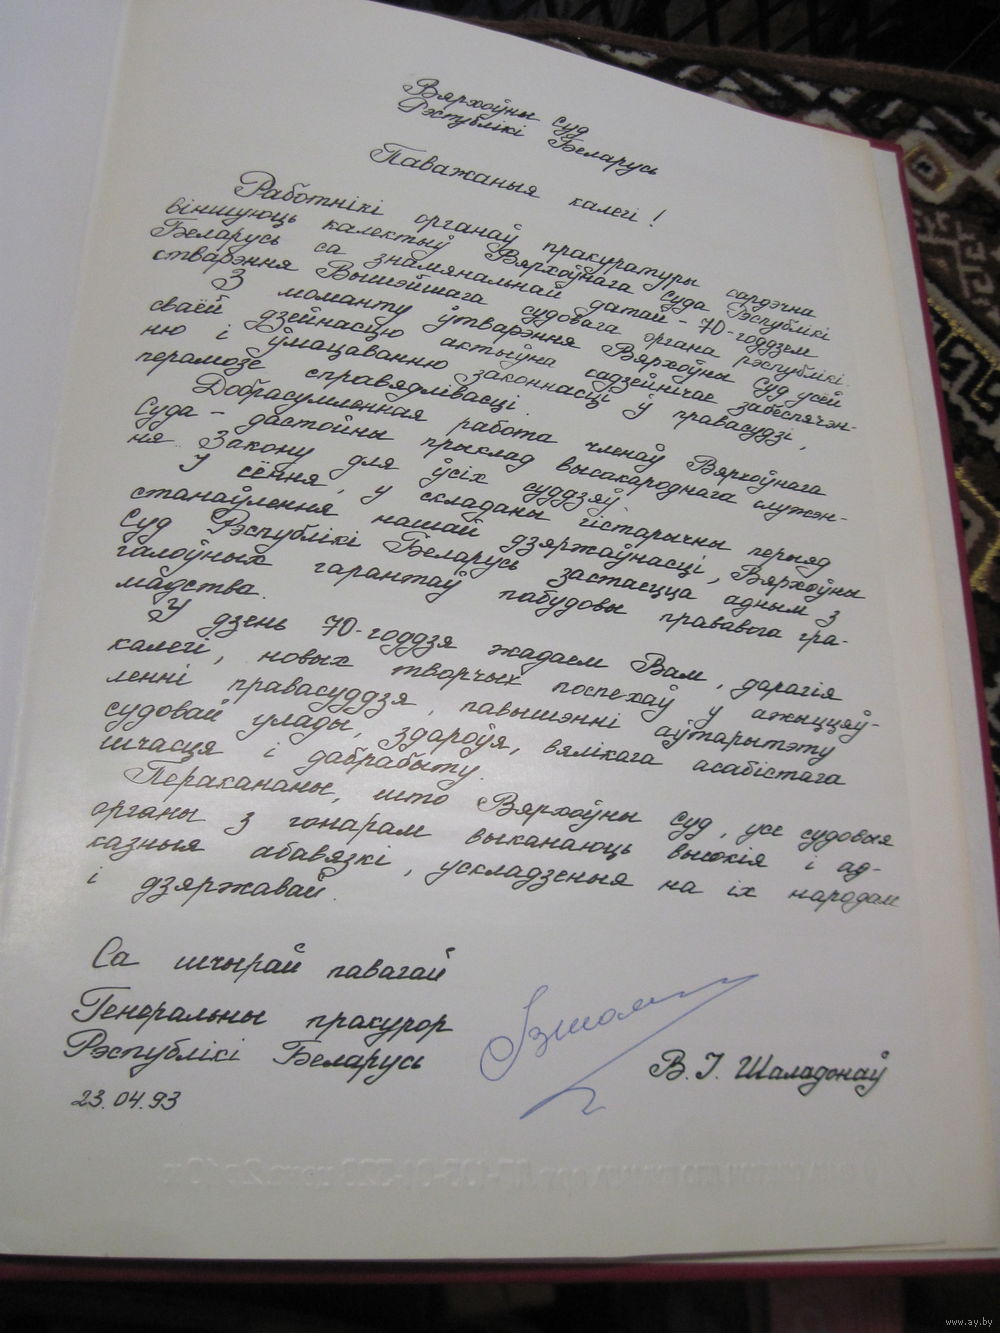 Вярхоўны суд
Рэспублікі Беларусь
Паважаныя калегі!
Работнікі органаў пракуратуры сардэчна
віншуюць калектыў Вярхоўнага Суда Рэспублікі
Беларусь са знамянальнай датай - 70-годдзем
стварэння Вышэйшага судовага органа рэспублікі.
З моманту ўтварэння Вярхоўны суд усёй
сваёй дзейнасцю актыўна садзейнічае забеспячэн-
ню і ўмацаванню законнасці ў правасудзі,
перамозе справядлівасці.
Добрасумленная работа членаў Вярхоўнага
Суда - дастойны прыклад высакароднага служэн-
ня Закону для ўсіх суддзяў.
І сёння, у складаны гістарычны перыяд
станаўлення нашай дзяржаўнасці, Вярхоўны
Суд Рэспублікі Беларусь застаецца адным з
галоўных гарантаў пабудовы прававога гра-
мадства.
У дзень 70-годдзя жадаем Вам, дарагія
калегі, новых творчых поспехаў у ажыццяў-
ленні правасуддзя, павышэнні аўтарытэту
судовай улады, здароўя, вялікага асабістага
шчасця і дабрабыту.
Перакананы, што Вярхоўны суд, усе судовыя
органы з гонарам выканаюць высокія і ад-
казныя абавязкі, ускладзеныя на іх народам
і дзяржавай.
Са шчырай павагай
Генеральны пракурор
Рэспублікі Беларусь
В. І. Шаладонаў
23.04.93
www.ay.by